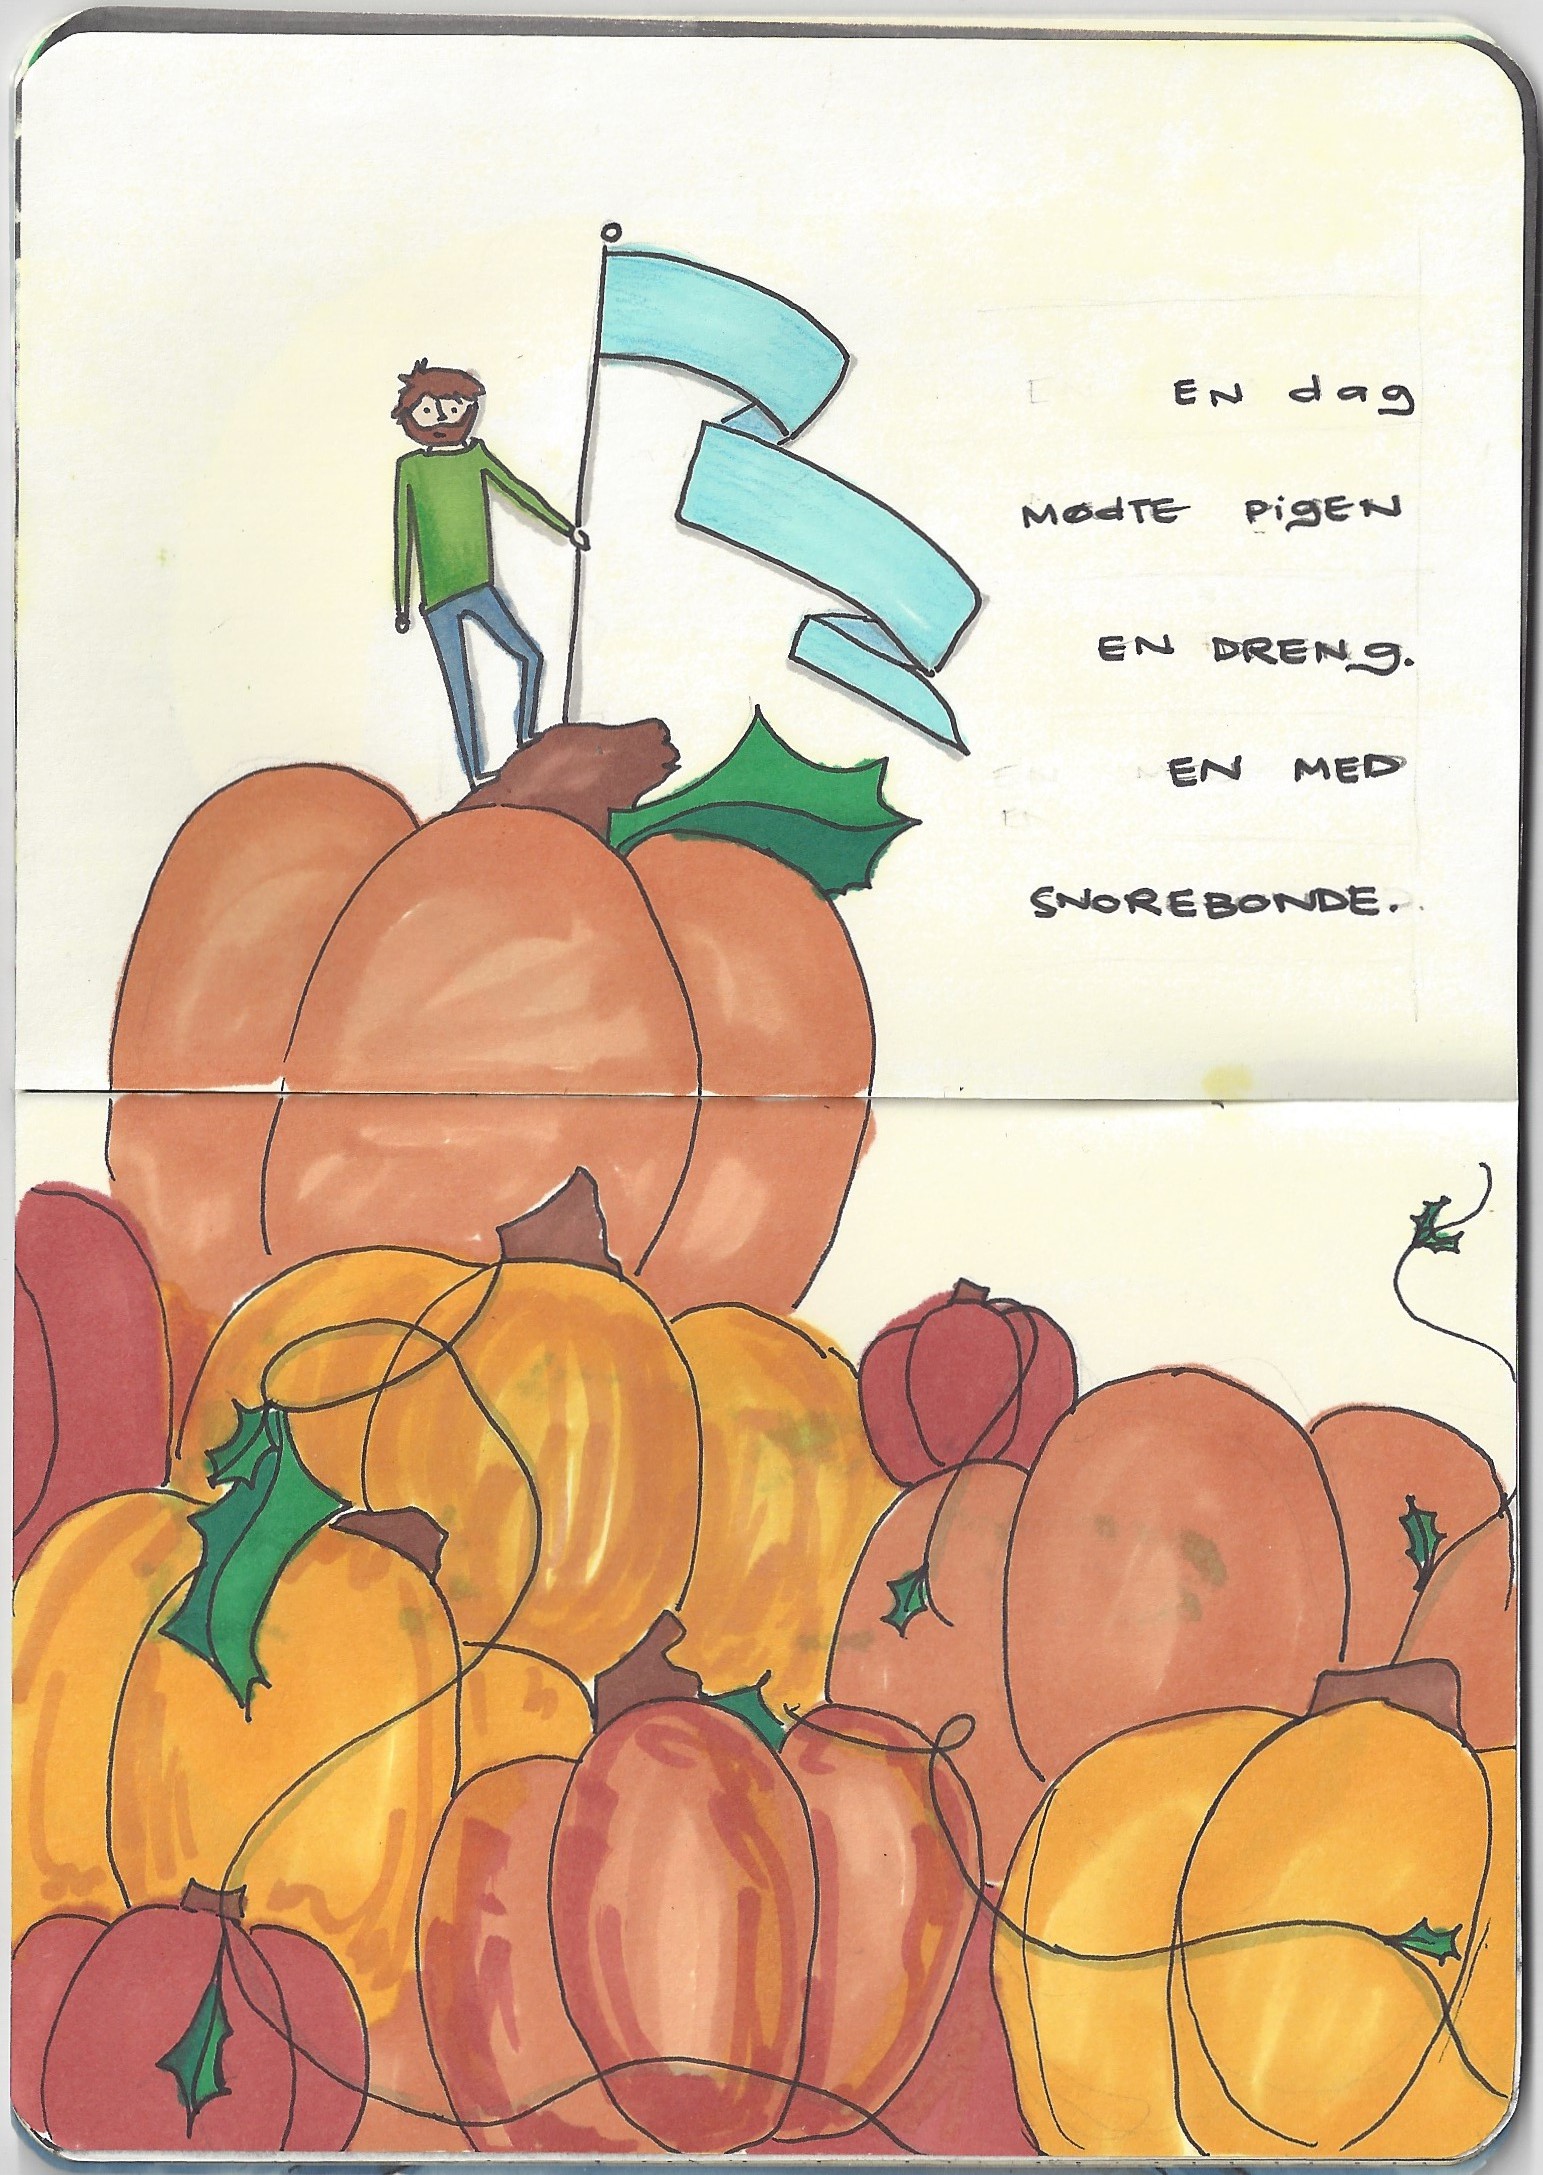 EN dag
MødTE PigEN
EN DRENg.
EN MED
SNOREBONDE.